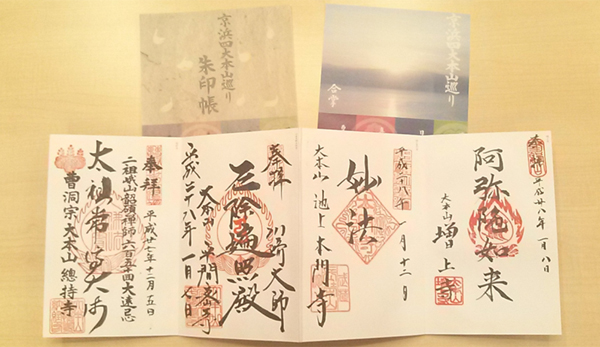 京浜四大本山巡り
朱印帳
京浜四大本山巡り
合掌
奉拝
平成廿八年一月八日
阿弥陀如来
大本山 増上寺
平成二十八年
一月十二日
妙法
大本山 池上本門寺
奉拝
川崎大師
遍照殿
大本山 平間寺
平成二十八年一月七日
奉拝
平成廿七年十二月五日
二祖峨山韶碩禅師六百五十回大遠忌
太祖常済大師
曹洞宗大本山總持寺